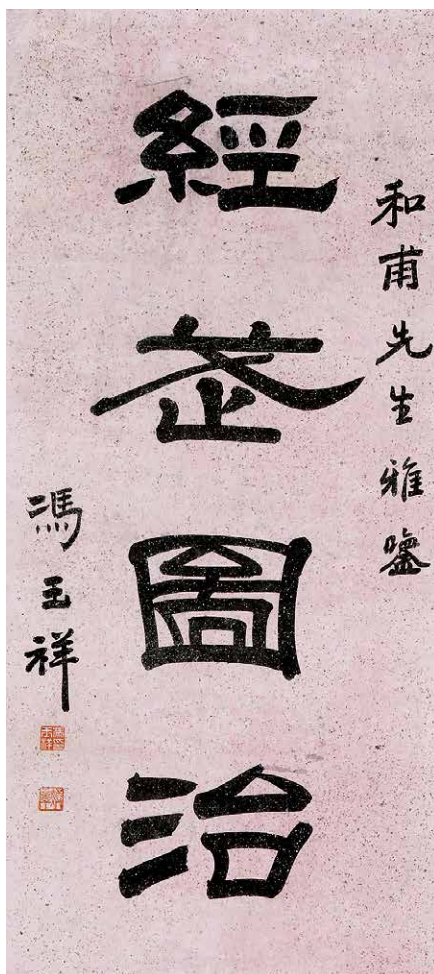 和甫先生雅鑒
經武圖治
馮玉祥